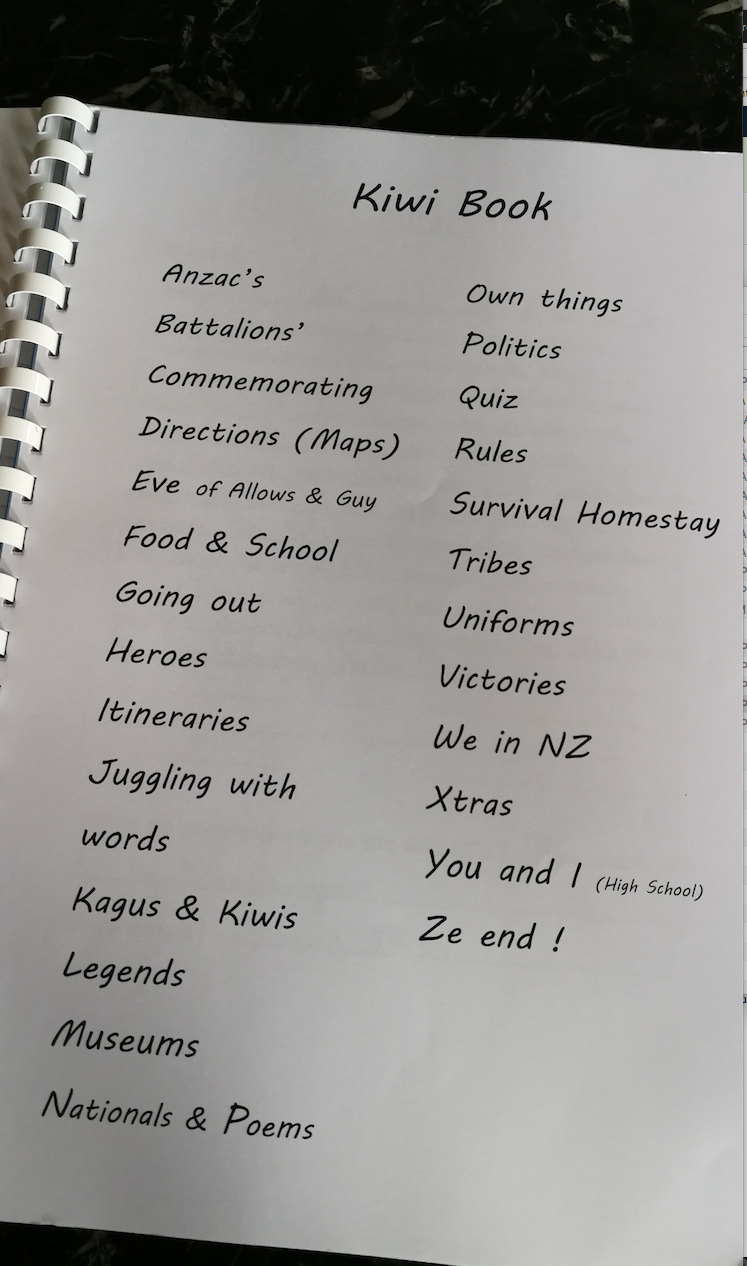 Kiwi Book
Anzac's
Battalions'
Commemorating
Directions (Maps)
Eve of Allows & Guy
Food & School
Going out
Heroes
Itineraries
Juggling with
words
Kagus & Kiwis
Legends
Museums
Nationals & Poems
Own things
Politics
Quiz
Rules
Survival Homestay
Tribes
Uniforms
Victories
We in NZ
Xtras
You and I (High School)
Ze end !